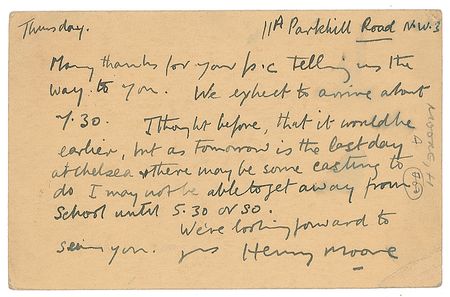 Thursday. 11A Parkhill Road N.W.3
Many thanks for your p.c telling us the
way to you. We expect to arrive about
7.30. I thought before, that it would be
earlier, but as tomorrow is the last day
at Chelsea & there may be some casting to
do I may not be able to get away from
School until 5.30 or so.
We're looking forward to
seeing you. yrs Henry Moore
MOORE, H